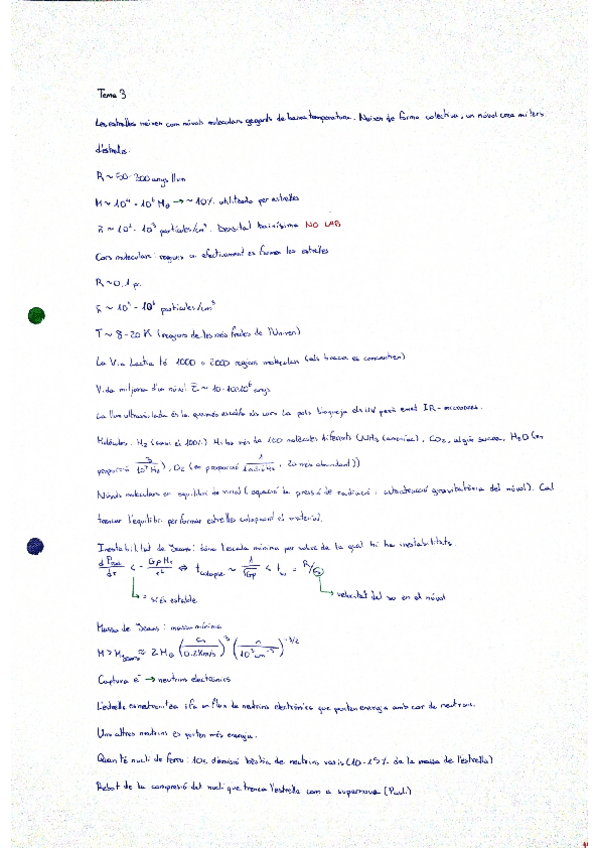 Tema 3
Les estrelles neixen com núvols moleculars gegants de baixa temperatura. Neixen de forma colectiva, un núvol crea milers
d'estrelles.
R ~ 50 - 300 anys llum
M ~ 10⁴ - 10⁶ M⊙ → ~ 10% utilitzada per estrelles
n̄ ~ 10² - 10³ partícules/cm³. Densitat baixíssima NO LAB
Cors moleculars: regions on efectivament es formen les estrelles
R ~ 0,1 pc
n̄ ~ 10⁴ - 10⁶ partícules/cm³
T ~ 8 - 20 K (regions de les més fredes de l'Univers)
La Via Lactia té 1000 o 2000 regions moleculars (als braços es concentren)
Vida mitjana d'un núvol τ ~ 10 - 100·10⁶ anys
La llum ultraviolada és la que però emet IR - microones.
Molècules: H₂ (quasi el 100%) Hi ha més de 100 molècules diferents (NH₃ (amoníac), CO₂, algún sucre, H₂O (en
proporció ), O₂ (en proporció , 20 més abundant))
Núvols moleculars en equilibri de virial (equació de pressió de radiació i autoatracció gravitatòria del núvol). Cal
trencar l'equilibri per formar estrelles colapsant el material.
Inestabilitat de Jeans: dóna l'escala mínima per sobre de la qual hi ha inestabilitats.
dP/dr < - GρM_r/r² ⇔ t_colapse ~ 1/√Gρ < t = R/c_s
= si és estable velocitat del so en el núvol
Massa de Jeans: massa mínima
M > M_Jeans ≈ 2 M⊙ (c_s/0.2 km/s)³ (n/10³ cm⁻³)^(-1/2)
Captura e⁻ → neutrins electrònics
L'estrella es neutronitza i fa un flux de neutrins electrònics que porten energia amb cor de neutrons.
Uns altres neutrins es porten més energia.
Quan té nucli de ferro: 10s d'emissió bèstia de neutrins varis (10-15% de la massa de l'estrella)
Rebot de la compresió del nucli que trenca l'estrella com a supernova (Pauli)